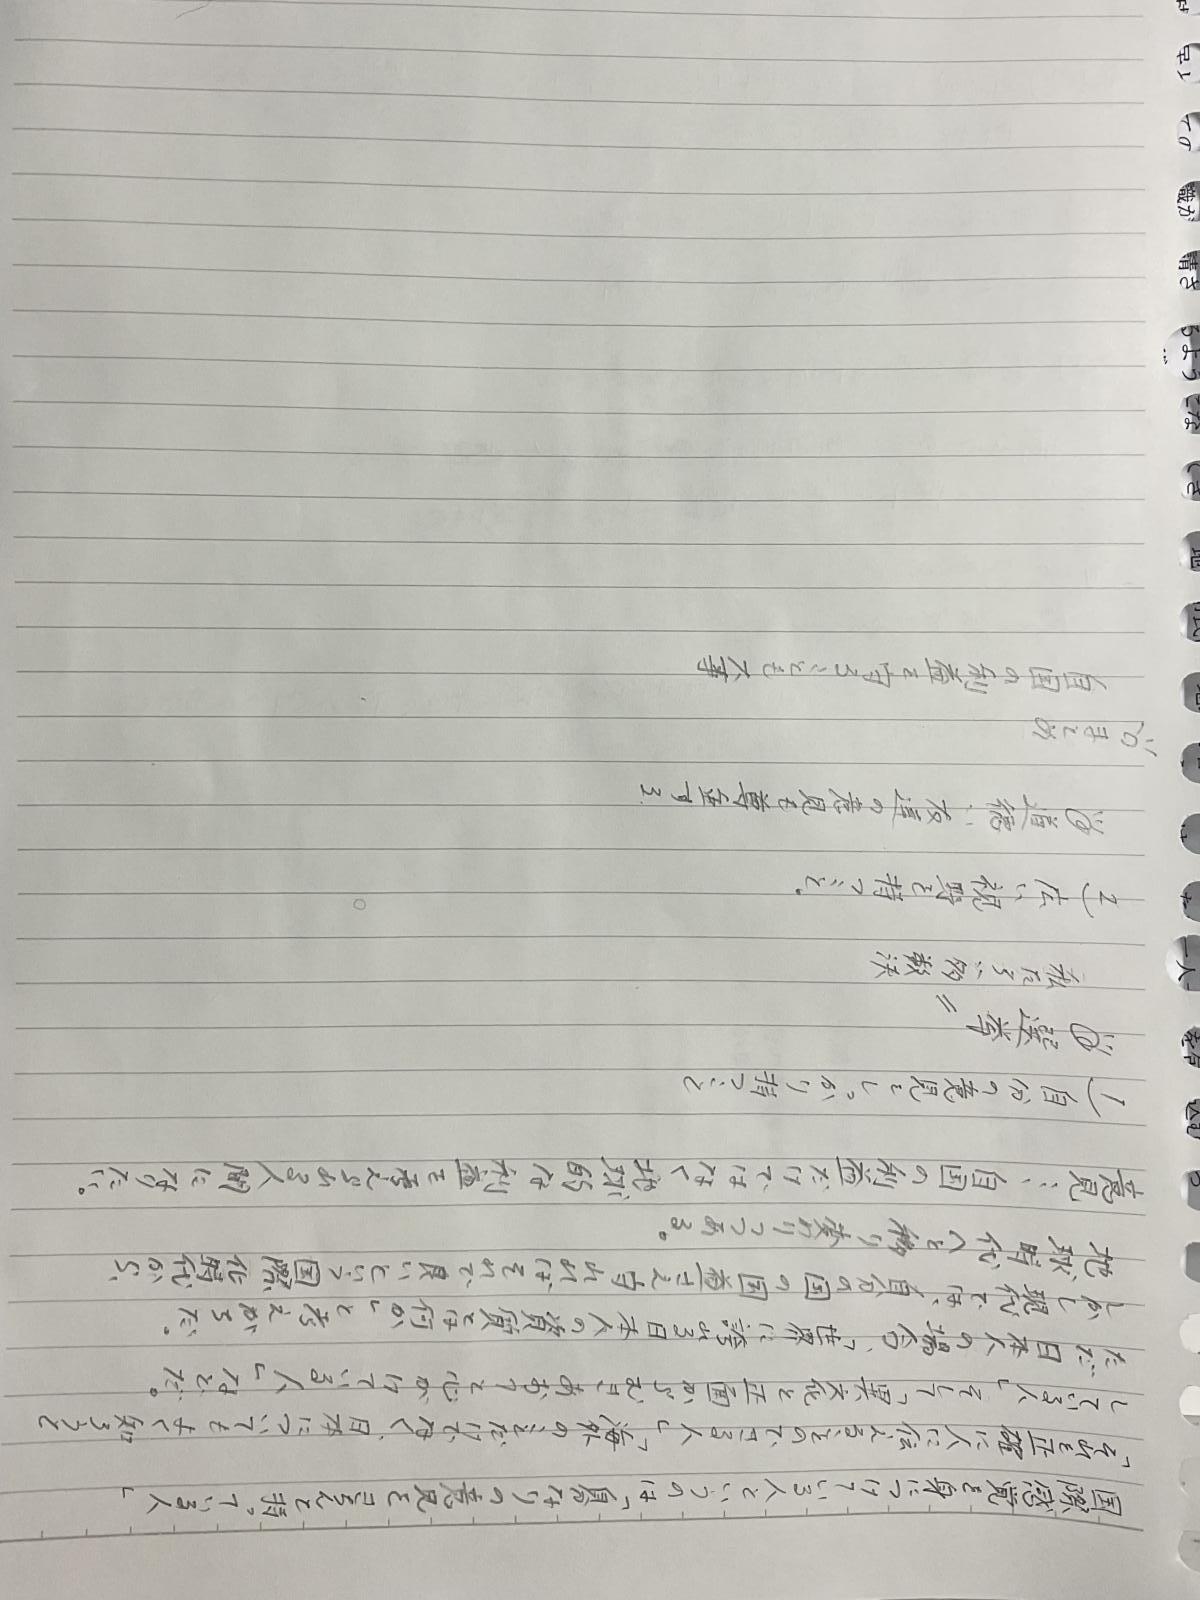 国際感覚を身につけている人というのは「自分なりの意見をきちんと持っている人」
「それを正確に人に伝えることのできる人」「海外のことだけでなく、日本についてもよく知ろうと
している人」そして「異文化と正面から向きあおうと心がけている人」などだ。
ただ、日本人の場合、「世界に誇れる日本人の資質とは何か」と考えがちだ。
しかし現代では、自分の国の国益さえ守れればそれで良いという国際化時代から、
地球時代へと移り変わりつつある。
意見…自国の利益だけではなく地球的な利益も考えられる人間になりたい。
1) 自分の意見をしっかり持つこと
例 選挙
〃
多数決
2) 広い視野を持つこと。
例 道徳… 友達の意見も尊重する
まとめ
自国の利益を守ることも大事